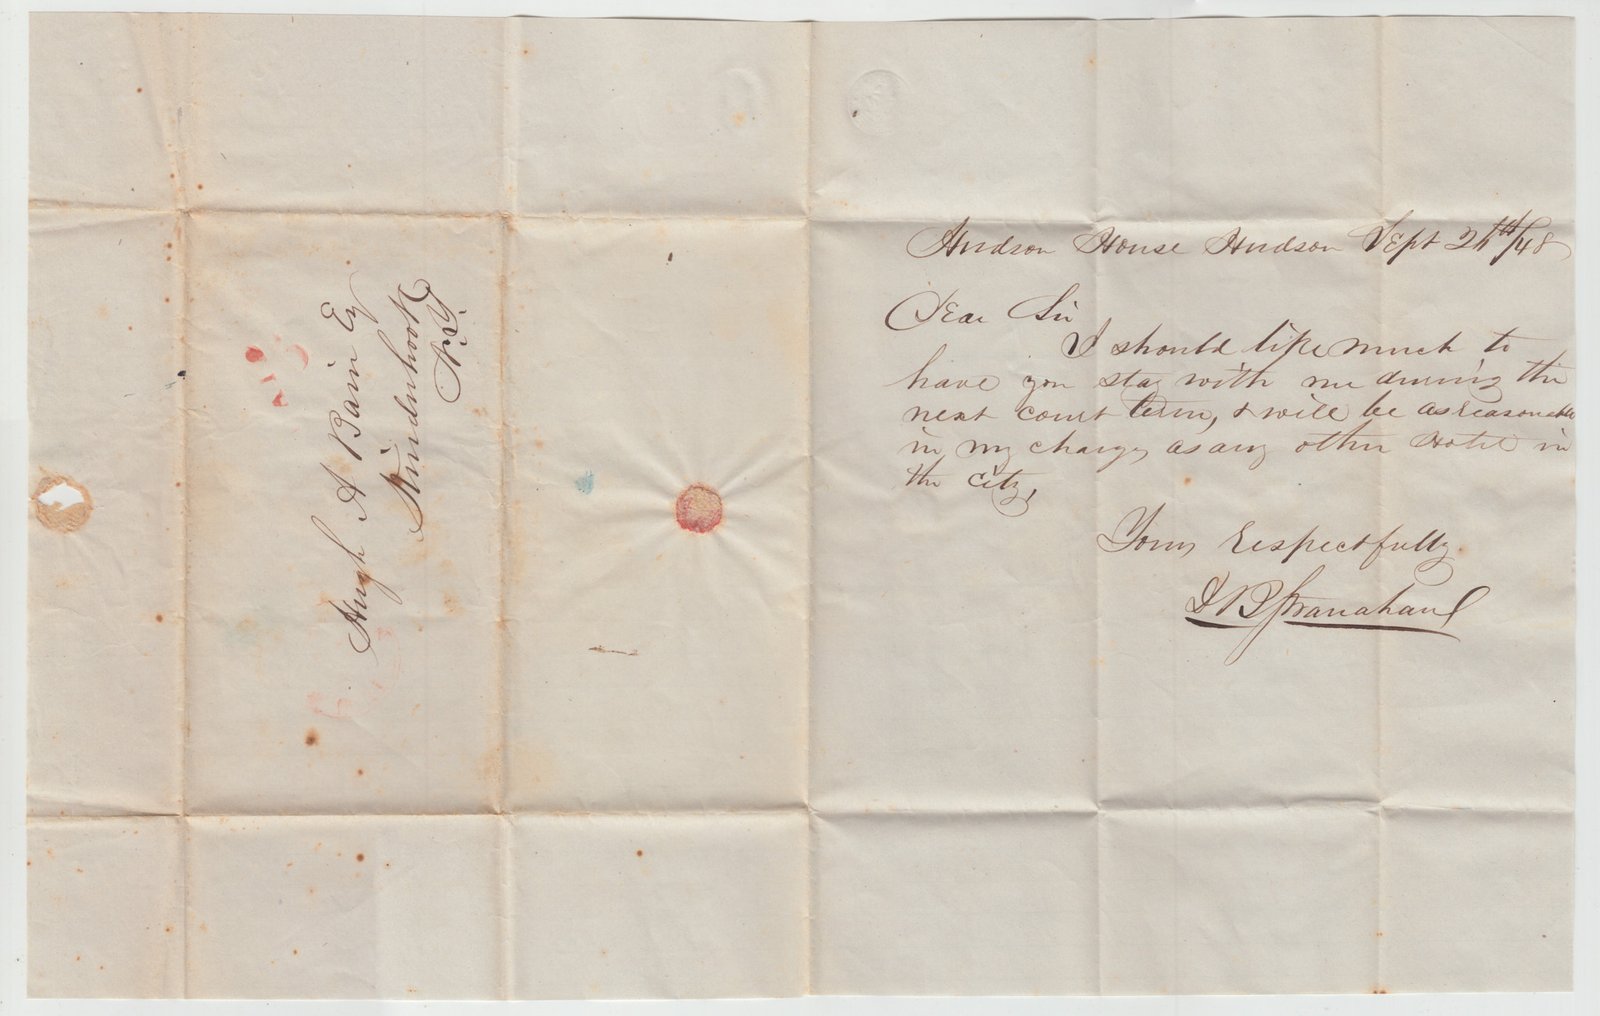 Hudson House Hudson Sept 26th/48
Dear Sir
I should like much to
have you stay with me during the
next court term, & will be as reasonable
in my charges as any other Hotel in
the city,
Yours Respectfully
J B Stranahan
Hugh A Bain Esq
Kinderhook
N.Y.